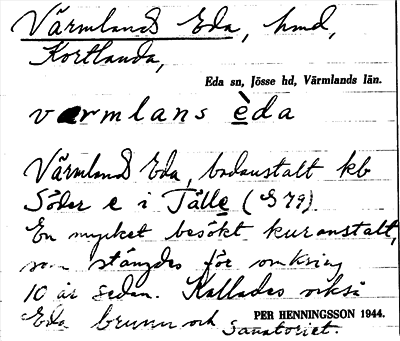 Värmlands Eda, hmd,
Kortlanda,
Eda sn, Jösse hd, Värmlands län.
varmlans èda
Värmlands Eda, badanstalt kb
Söder e i Tålle (S 79).
En mycket besökt kuranstalt,
som stängdes för omkring
10 år sedan. Kallades också
Eda brunn och Sanatoriet.
PER HENNINGSSON 1944.